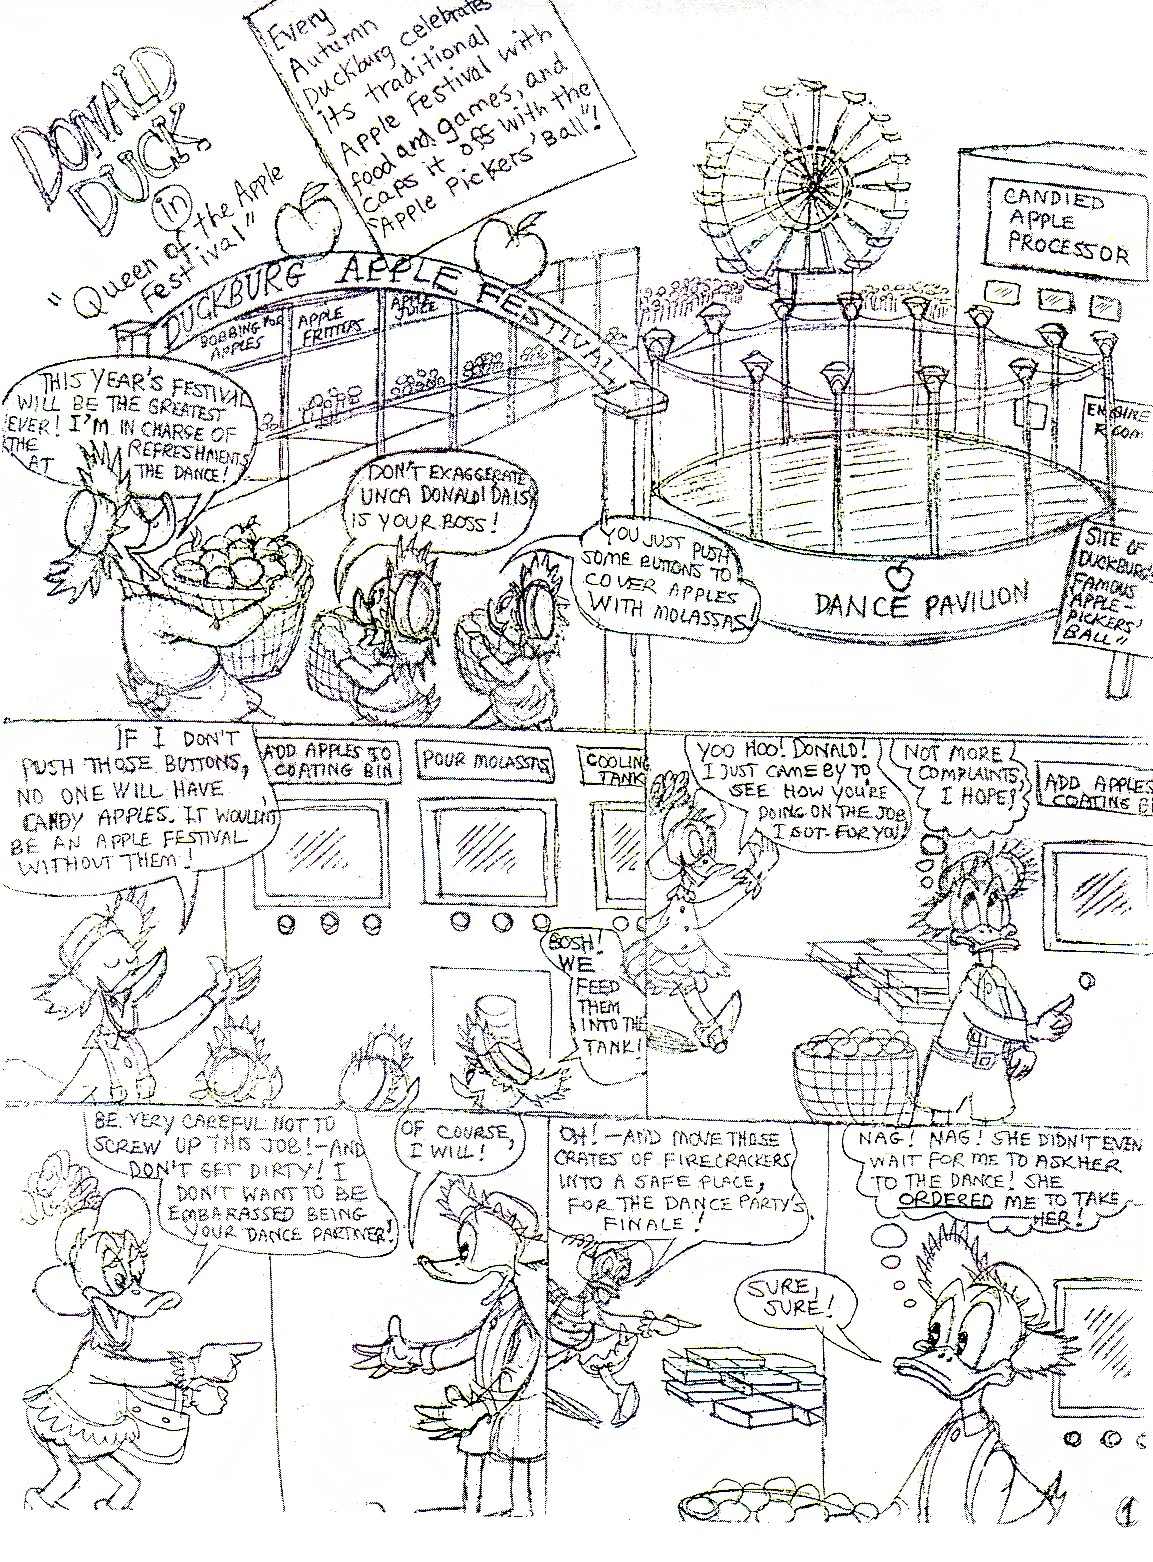 DONALD
DUCK
in
"Queen of the Apple
Festival"
Every
Autumn
Duckburg celebrates
its traditional
Apple Festival with
food and games, and
caps it off with the
"Apple Pickers' Ball"!
DUCKBURG APPLE FESTIVAL
BOBBING FOR
APPLES
APPLE
FRITTERS
APPLE
JUICE
CANDIED
APPLE
PROCESSOR
ROOM
DANCE PAVILION
SITE OF
DUCKBURG'S
FAMOUS
APPLE-
PICKERS'
BALL"
THIS YEAR'S FESTIVAL
WILL BE THE GREATEST
EVER! I'M IN CHARGE OF
THE REFRESHMENTS
AT THE DANCE!
DON'T EXAGGERATE
UNCA DONALD! DAISY
IS YOUR BOSS!
YOU JUST PUSH
SOME BUTTONS TO
COVER APPLES
WITH MOLASSAS!
IF I DON'T
PUSH THOSE BUTTONS,
NO ONE WILL HAVE
CANDY APPLES. IT WOULDN'T
BE AN APPLE FESTIVAL
WITHOUT THEM!
ADD APPLES TO
COATING BIN
POUR MOLASSAS
COOLING
TANK
BOSH!
WE
FEED
THEM
INTO THE
TANK!
YOO HOO! DONALD!
I JUST CAME BY TO
SEE HOW YOU'RE
DOING ON THE JOB
I GOT FOR YOU!
NOT MORE
COMPLAINTS,
I HOPE!
ADD APPLES
COATING BI
BE VERY CAREFUL NOT TO
SCREW UP THIS JOB!-AND
DON'T GET DIRTY! I
DON'T WANT TO BE
EMBARASSED BEING
YOUR DANCE PARTNER!
OF COURSE,
I WILL!
OH!-AND MOVE THOSE
CRATES OF FIRECRACKERS
INTO A SAFE PLACE,
FOR THE DANCE PARTY'S
FINALE!
NAG! NAG! SHE DIDN'T EVEN
WAIT FOR ME TO ASK HER
TO THE DANCE! SHE
ORDERED ME TO TAKE
HER!
SURE,
SURE!
1